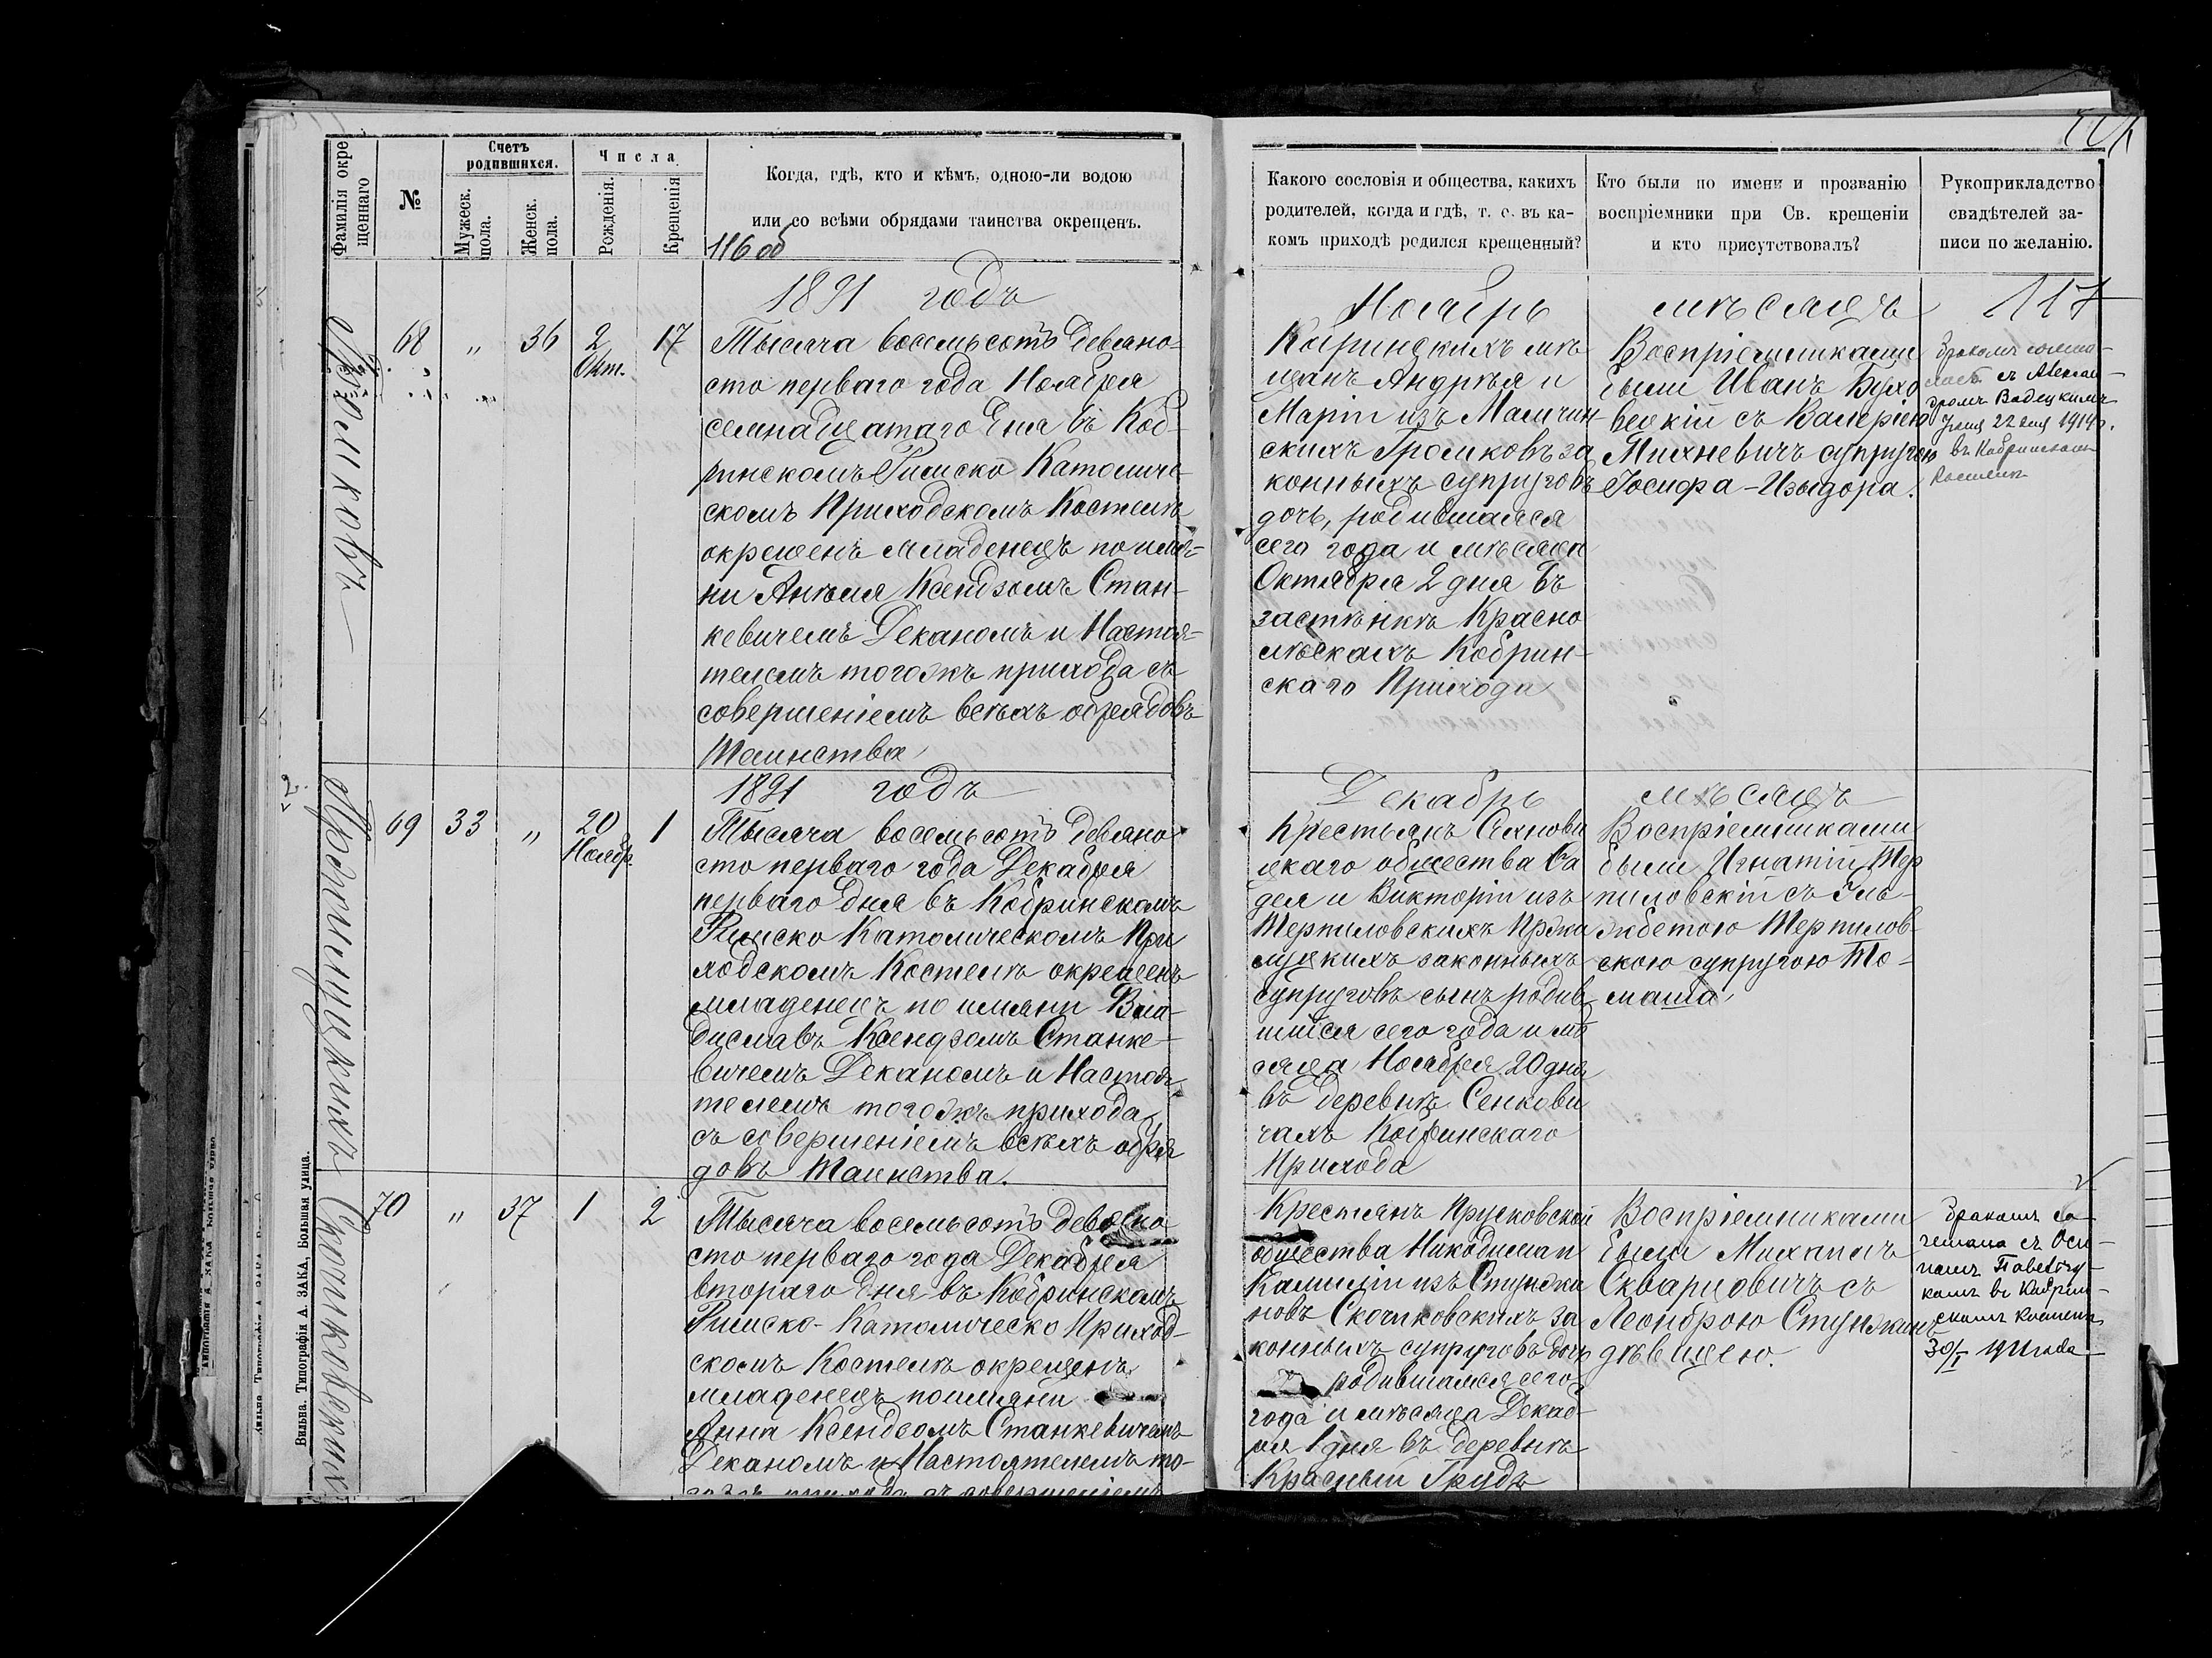 Фамилія окре
щеннаго
№
Счетъ
родившихся.
Мужеск.
пола.
Женск.
пола.
Числа
Рожденія.
Крещенія
Когда, гдѣ, кто и кѣмъ, одною-ли водою
или со всѣми обрядами таинства окрещенъ.
116 об
1891 годъ
Громиковъ
68 „ 36 2 17
Окт.
Тысяча восемьсотъ девяно-
сто перваго года Ноября
семнадцатаго дня въ Коб-
ринскомъ Римско Католиче-
скомъ Приходскомъ Костелѣ
окрещенъ младенецъ по имя-
ни Анѣля Ксендзомъ Стан-
кевичемъ Деканомъ и Настоя-
телемъ тогожъ прихода съ
совершеніемъ всѣхъ обрядовъ
Таинства
1891 годъ
69 33 „ 20 1
Ноябр.
Тысяча восемьсотъ девяно-
сто перваго года Декабря
перваго дня въ Кобринскомъ
Римско Католическомъ При
ходскомъ Костелѣ окрещенъ
младенецъ по имяни Вла-
диславъ Ксендзомъ Станке-
вичемъ Деканомъ и Настоя-
телемъ тогожъ прихода
съ совершеніемъ всѣхъ обря
довъ Таинства.
70 „ 37 1 2
Тысяча восемьсотъ девяно
сто перваго года Декабря
втораго дня въ Кобринскомъ
Римско-Католическо Приход-
скомъ Костелѣ окрещенъ
младенецъ по имяни
Анна Ксендзомъ Станкевичемъ
Деканомъ и Настоятелемъ то-
гожъ прихода съ совершеніемъ
Вильна. Типографія А. ЗАКА, Большая улица.
Какого сословія и общества, какихъ
родителей, когда и гдѣ, т. е. въ ка-
комъ приходѣ родился крещенный?
Кто были по имени и прозванію
воспріемники при Св. крещеніи
и кто присутствовалъ?
Рукоприкладство
свидѣтелей за-
писи по желанію.
Ноябрь мѣсяцъ 117
Кобринскихъ мѣ
щанъ Андрея и
Маріи изъ Маличин-
скихъ Громиковъ за
конныхъ супруговъ
дочь, родившаяся
сего года и мѣсяца
Октября 2 дня въ
застѣнкѣ Красно
Кобрин-
скаго Прихода
Воспріемниками
были Иванъ Бухо
вескій съ Валеріею
Михневичъ супругою
Іосифа-Изыдора.
съ Алексан-
дромъ
22 1914 г.
въ Кобринскомъ
Костелѣ
Декабрь мѣсяцъ
Крестьянъ
скаго общества
дея и Викторіи изъ
Терпиловскихъ
законныхъ
супруговъ сынъ родив
шійся сего года и мѣ
сяца Ноября 20 дня
въ деревнѣ Сенкови
чахъ Кобринскаго
Прихода
Воспріемниками
были Игнатій Тер
пиловскій съ Эль-
жбетою Терпилов-
скою супругою То-
маша
Крестьянъ Прусковской
общества Никодима и
Камиліи изъ Стунжи
новъ Скочковскихъ за
конныхъ супруговъ дочь
родившаяся сего
года и мѣсяца Декаб-
ря 1 дня въ деревнѣ
Красный Грудъ
Воспріемниками
были Михаилъ
Скварцовичъ съ
Леондрою Стунжинъ
дѣвицею.
бракомъ со-
четана съ Оси-
помъ
комъ въ Кобрин-
скомъ костелѣ